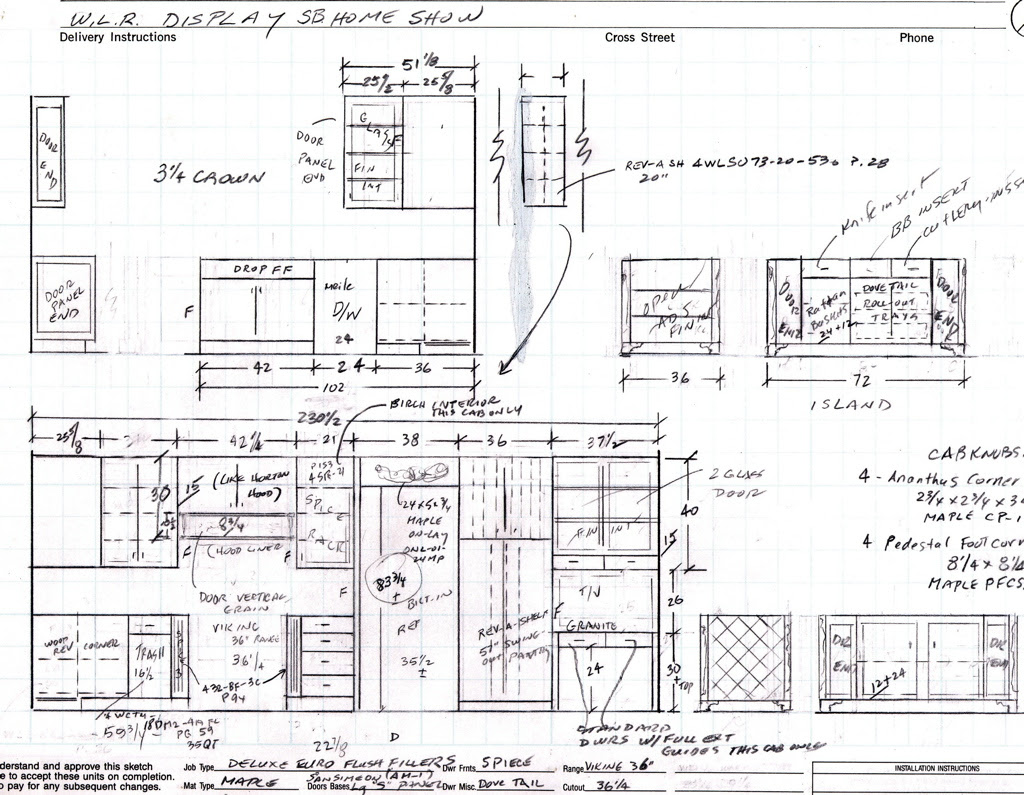 W.L.R. DISPLAY SB HOME SHOW
Delivery Instructions
Cross Street
Phone
51 1/8
25 1/2
25 5/8
DOOR
END
DOOR
PANEL
END
GLASS
FIN
INT
3 1/4 CROWN
REV-A SH 4WLSU73-20-536 P.28
20"
Knife insert
BB INSERT
CUTLERY INS
DOOR
PANEL
END
F
DROP FF
Meile
D/W
24
OPEN
FIN IN
DOOR
END
Rattan
Baskets
24+12
DOVE TAIL
ROLL-OUT
TRAYS
DOOR
END
42
24
36
102
36
72
ISLAND
BIRCH INTERIOR
THIS CAB ONLY
230 1/2
25 5/8
42 1/4
21
38
36
37 1/2
30
15
(LIKE HORTON
HOOD)
8 3/4
(HOOD LINER
F
F
SPICE
RACK
24x5 2 3/4
MAPLE
ON-LAY
ONL-01-
24MP
83 3/4
±
BILT. IN
REF
35 1/2
±
F
REV-A-SHELF
51" SWING-
OUT PANTRY
FIN INT
2 GLASS
DOOR
40
15
T/V
F
26
GRANITE
24
30
+ TOP
CAB KNOBS.
4 - Ananthus Corner
MAPLE CP-1
4 Pedestal Foot Corn
8 1/4 x 8 1/4
MAPLE PFCS
DOOR VERTICAL
GRAIN
VIKING
36" RANGE
36 1/4
WOOD
REV
CORNER
TRASH
16 1/2
432-BF-3C
P94
59 3/4
PG 59
35QT
22 7/8
D
STANDARD
DWRS W/ FULL EXT
GUIDES THIS CAB ONLY
DR
END
12+24
DR
END
derstand and approve this sketch
e to accept these units on completion.
to pay for any subsequent changes.
Job Type DELUXE EURO FLUSH FILLERS
Dwr Frnts 5 PIECE
Range VIKING 36"
INSTALLATION INSTRUCTIONS
Mat Type MAPLE
Doors Bases SAN SIMEON (AH-1) Lg "S" PANEL
Dwr Misc. DOVE TAIL
Cutout 36 1/4